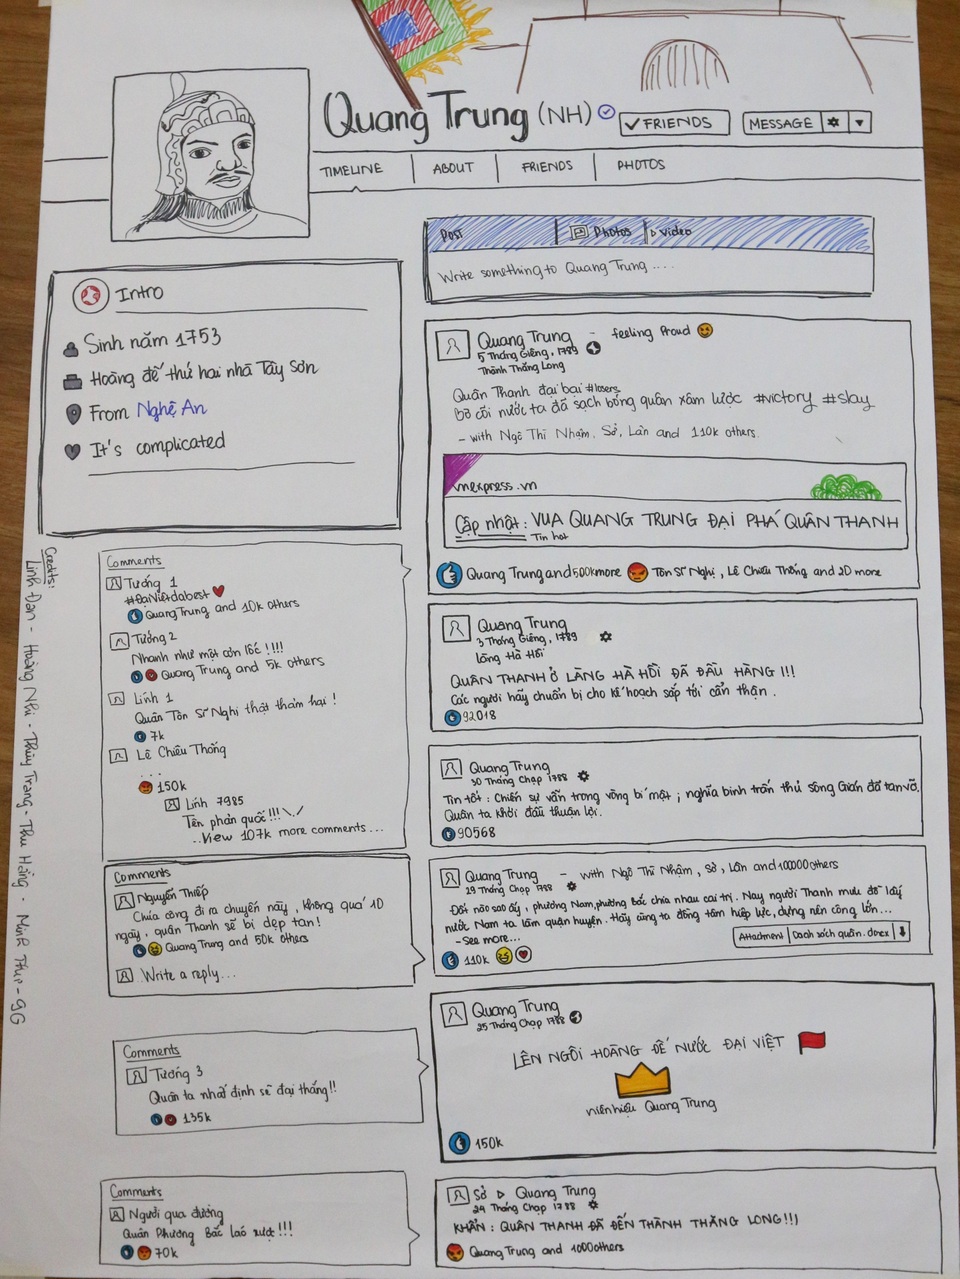 Quang Trung (NH)
FRIENDS
MESSAGE
TIMELINE
ABOUT
FRIENDS
PHOTOS
Intro
Sinh năm 1753
Hoàng đế thứ hai nhà Tây Sơn
From Nghệ An
It's complicated
Post
Photos
Video
Write something to Quang Trung ....
Quang Trung - feeling Proud
5 Tháng Giêng, 1789
Thành Thăng Long
Quân Thanh đại bại #losers
Bờ cõi nước ta đã sạch bóng quân xâm lược #victory #slay
- with Ngô Thì Nhậm, Sở, Lân and 110k others.
vnexpress.vn
Cập nhật: VUA QUANG TRUNG ĐẠI PHÁ QUÂN THANH
Tin hot
Quang Trung and 500k more
Tôn Sĩ Nghị, Lê Chiêu Thống and 20 more
Comments
Tướng 1
#ĐạiViệtdabest
Quang Trung and 10k others
Tướng 2
Nhanh như một cơn lốc !!!!
Quang Trung and 5k others
Lính 1
Quân Tôn Sĩ Nghị thật thảm hại !
7k
Lê Chiêu Thống
...
150k
Lính 7985
Tên phản quốc!!!
..View 107k more comments...
Quang Trung
3 Tháng Giêng, 1789
Làng Hà Hồi
QUÂN THANH Ở LÀNG HÀ HỒI ĐÃ ĐẦU HÀNG !!!
Các ngươi hãy chuẩn bị cho kế hoạch sắp tới cẩn thận.
92018
Quang Trung
30 Tháng Chạp 1788
Tin tốt: Chiến sự vẫn trong vòng bí mật; nghĩa binh trấn thủ sông Gián đã tan vỡ.
Quân ta khởi đầu thuận lợi.
90568
Comments
Nguyễn Thiếp
Chúa công đi ra chuyến này, không quá 10
ngày, quân Thanh sẽ bị dẹp tan!
Quang Trung and 50k others
Write a reply...
Quang Trung - with Ngô Thì Nhậm, Sở, Lân and 100000 others
29 Tháng Chạp 1788
Đất nào sao ấy, phương Nam, phương Bắc chia nhau cai trị. Nay người Thanh mưu đồ lấy
nước Nam ta làm quận huyện. Hãy cùng ta đồng tâm hiệp lực, dựng nên công lớn...
- See more...
Attachment
Danh sách quân.docx
110k
Quang Trung
25 Tháng Chạp 1788
LÊN NGÔI HOÀNG ĐẾ NƯỚC ĐẠI VIỆT
niên hiệu Quang Trung
150k
Comments
Tướng 3
Quân ta nhất định sẽ đại thắng!!
135k
Comments
Người qua đường
Quân Phương Bắc láo xược!!!
70k
Sở ▷ Quang Trung
24 Tháng Chạp 1788
KHẨN: QUÂN THANH ĐÃ ĐẾN THÀNH THĂNG LONG!!!
Quang Trung and 1000 others
Credits:
Linh Đan - Hoàng Nhi - Thùy Trang - Thu Hằng - Minh Thư - 9G